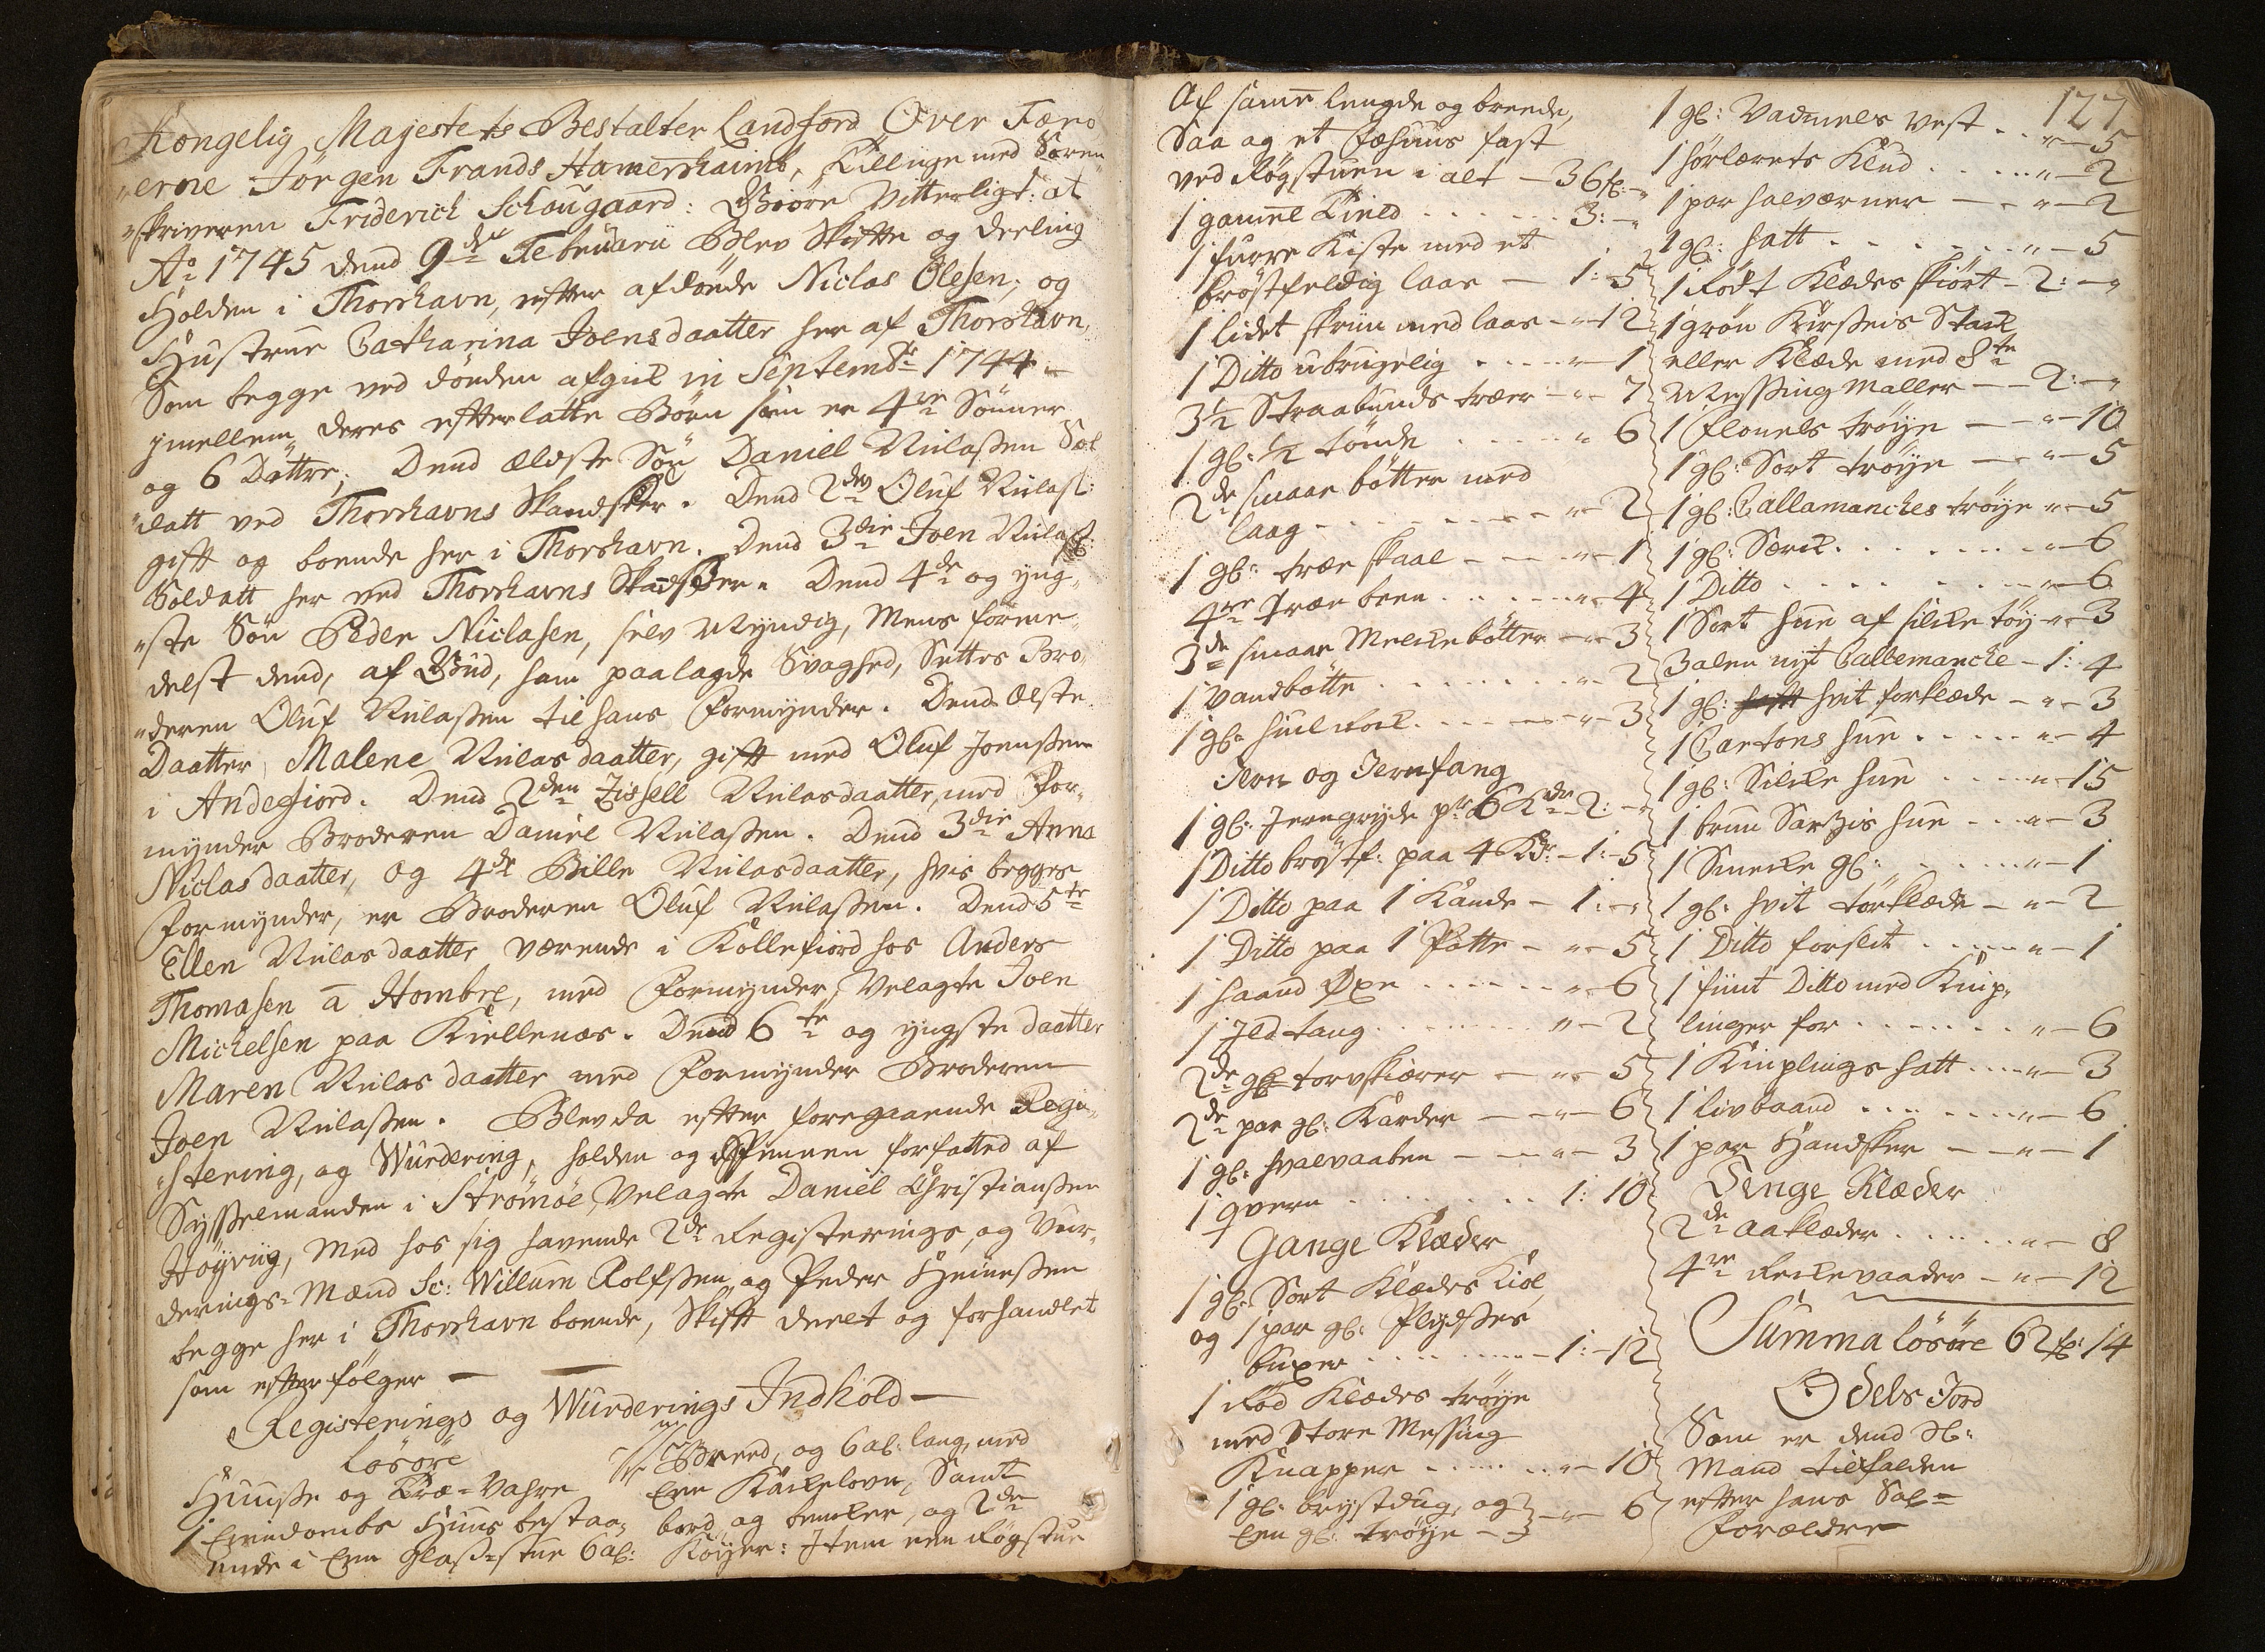 Kongelig Majestets Bestalter Landford Over Færö
"erne Jörgen Frands Hamershaimb, Tillige med Soren
"skriveren Friderich Schougaard: Giöre Vitterligt: at
Ao 1745 dend 9de Februarii Blev Skifte og deeling
Holden i Thorshavn, efter afdöde Niclas Olesen, og
Hustrue Catharina Joensdaatter her af Thorshavn,
Som begge ved döden afgik in Septembr 1744 –
jmellem deres efterlatte Börn som er 4re Sönner
og 6 Dattre; Dend ældste Sön Daniel Niclasen Sol
"datt ved Thorshavns Skandsker. Dend 2den Oluf Niclas:
gift og boende her i Thorshavn. Dend 3die Joen Niclas:
Soldatt her ved Thorshavns Skandsker. Dend 4de og yng„
"ste Sön Peder Niclasen, selv Myndig, Mens forme„
delst dend, af Gud, ham paalagde Svaghed, Settes Bro„
"deren Oluf Niclasen til hans Formynder. Dend Elste
Daatter, Malene Niclasdaatter, gift med Oluf Joensen
i Andefiord. Dend 2den Zissell Niclasdaatter, med For„
mynder Broderen Daniel Niclasen. Dend 3die Anna
Niclasdaatter, og 4de Bille Niclasdaatter, hvis begges
Formynder, er Broderen Oluf Niclasen. Dend 5te
Ellen Niclasdaatter værende i Kollefiord hos Anders
Thomasen a Hombre, med Formynder, Velagte Joen
Michelsen paa Kiellenæs. Dend 6te og yngste daatter
Maren Niclasdaatter med Formynder Broderen
Joen Niclasen. Blev da efter foregaaende Regi„
"stering, og Wurdering, holden og forfatted af
Sysselmanden i Strömöe, Velagte Daniel Christiansen
Höyviig, Med hos sig havende 2de Registerings, og Vur„
derings-Mænd Sc: Willum Rolfsen, og Peder Heinesen
begge her i Thorshavn boende, Skift deelt og forhandlet
som efterfölger –
Registerings og Wurderings Indhold –
Lösöre
Huuse og Træ-Vahre
1 Eindombs Huus bestaa„
ende i Een Glas-stue 6 al:
Breed, og 6 al: lang, med
Een Kackelovn, Samt
bord og bencker, og 2de
Köyer: Item een Rögstue
127
Af samme lengde og breede,
Saa og et Fæhuus fast
ved Rögstuen i alt – 36 fl: –"
1 gamel Kield . . . . . 3: –"
1 furre Kiste med et
bröstfeldig laas – 1: – 5
1 lidet skrin med laas – " – 12
1 Ditto ubrugelig . . . . " – 1
3½ Straabunds træer – " – 7
1 gl: ½ tönde . . . . " 6
2de smaae bötter med
laag . . . . . . " – 2
1 gl: træe skaal – – " – 1
4re Træe been . . . . " – 4
3de smaae Melckebötter – " – 3
1 Vandbötte . . . . . " – 2
1 gl: huil rock . . . . " – 3
Jern og Jernfang
1 gl: Jerngryde pr 6 Kdr – 2: –"
1 Ditto bröstf: paa 4 Kdr – 1: – 5
1 Ditto paa 1 Kande – 1: –"
1 Ditto paa 1 Potte – " – 5
1 haand Öxe . . . . . " – 6
1 Ildtang . . . . . " – 2
2de gl: torvskiærer – " – 5
2de par gl: Karder – " – 6
1 gl: hvalvaaben – – " – 3
1 qvern . . . . . 1: 10
Gange Klæder
1 gl: Sort Klædes Kiol,
og 1 par gl: Plydses
buxer . . . . . 1: – 12
1 Röd Klædes tröye
med Store Messing
Knapper . . . . . " – 10
1 gl: brystdug, og
Een gl: tröye – } – " – 6
1 gl: Vadmels Vest . . " – 5
1 hörlærets Klud . . . . " – 2
1 par halværmer – – " – 2
1 gl: hatt . . . . . " – 5
1 Rödt Klædes skiört – 2: –"
1 grön Kirseis Stack
eller Klæde med 8te
Messing Maller – – 2: –"
1 Flonels tröye – – " – 10
1 gl: Sort tröye – – " – 5
1 gl: Callamanckes tröye " – 5
1 gl: Særck . . . . . " – 6
1 Ditto . . . . . " – 6
1 Sort hue af silcke töy " – 3
3 alen nyt Callemancke – 1: 4
1 gl: hvit forklæde – " – 3
1 Cartons hue . . . . " – 4
1 gl: Silcke hue . . . . " – 15
1 bruun Sarzis hue . . " – 3
1 Smecke gl: . . . . . " – 1
1 gl: hvit törklæde – " – 2
1 Ditto forslit . . . . " – 1
1 fiint Ditto med Knip„
linger for . . . . . " – 6
1 Kniplings hatt . . . " – 3
1 livbaand . . . . . " – 6
1 par Handsker – – " – 1
Senge Klæder
2de aaklæder . . . . " – 8
4re Reckevaader – " – 12
Summa lösöre 62 fl: 14
Odels Jord
Som er dend Sl:
Mand tilfalden
efter hans Sal=
Forældre